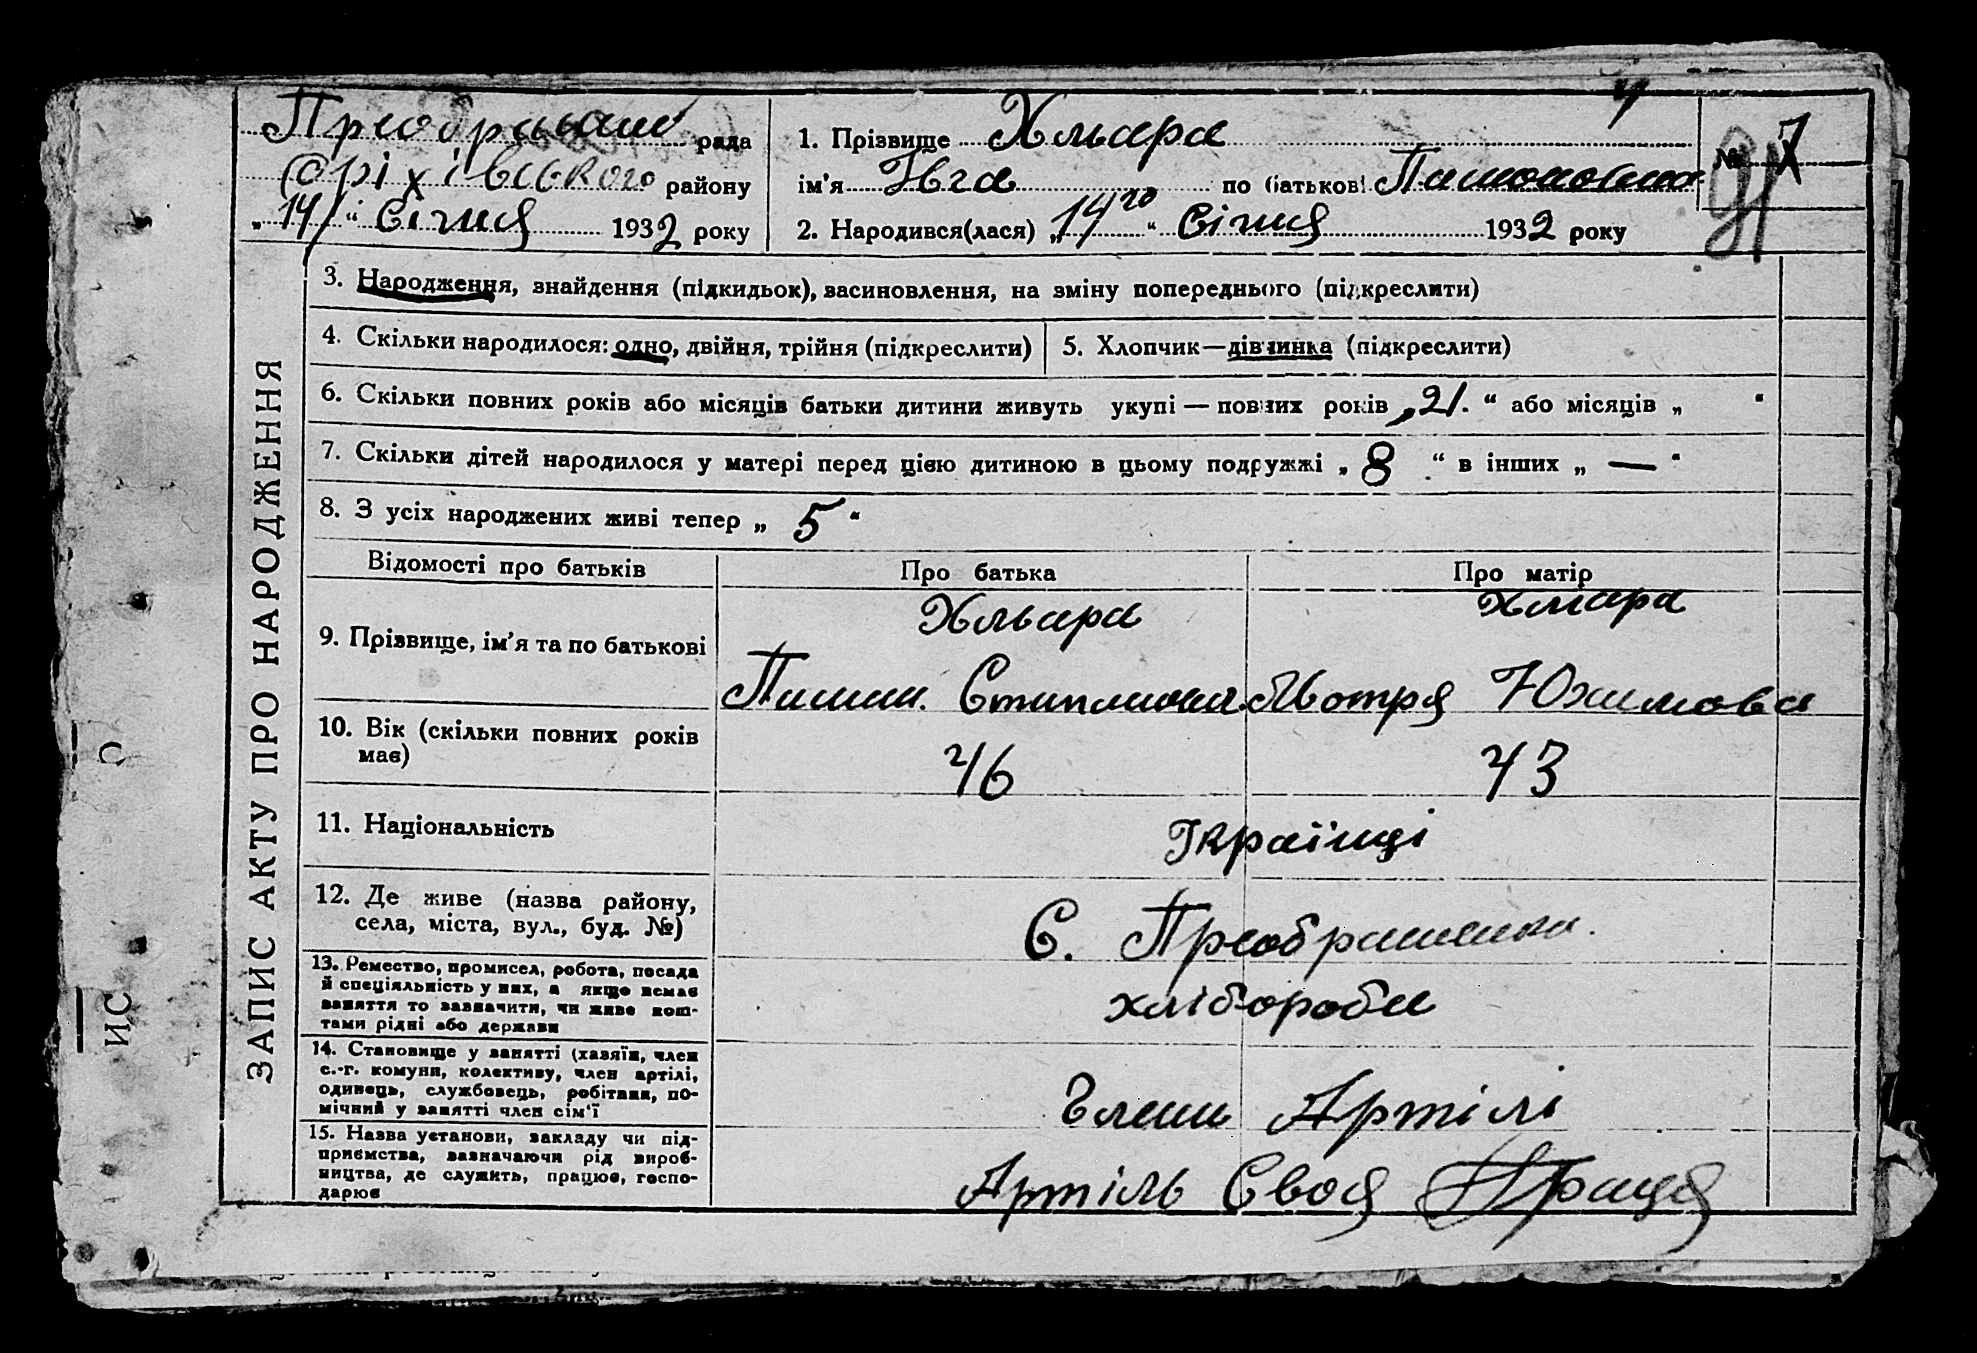 рада
Оріхівського району
„14“ Січня 1932 року
1. Прізвище Хмара
ім'я Ївга по батькові Пимоновна
№ 7
2. Народився(лася) „14го“ Січня 1932 року
ЗАПИС АКТУ ПРО НАРОДЖЕННЯ
3. Народження, знайдення (підкидьок), васиновлення, на зміну попереднього (підкреслити)
4. Скільки народилося: одно, двійня, трійня (підкреслити)
5. Хлопчик—дівчинка (підкреслити)
6. Скільки повних років або місяців батьки дитини живуть укупі — повних років „21.“ або місяців „ “
7. Скільки дітей народилося у матері перед цією дитиною в цьому подружжі „8“ в інших „—“
8. З усіх народжених живі тепер „5“
Відомості про батьків
Про батька
Про матір
9. Прізвище, ім'я та по батькові
Хмара
Пимон
Хмара
Мотря Юхимова
10. Вік (скільки повних років
має)
46
43
11. Національність
Українці
12. Де живе (назва району,
села, міста, вул., буд. №)
С. Преображенка.
13. Ремество, промисел, робота, посада
й спеціяльність у них, а якщо немає
заняття то зазначити, чи живе кош-
тами рідні або держави
хлібороби
14. Становище у занятті (хазяїн, член
с.-г. комуни, колективу, член артілі,
одинець, службовець, робітник, по-
мічний у занятті член сім'ї
Члени Артілі
15. Назва установи, закладу чи під-
приємства, зазначаючи рід вироб-
ництва, де служить, працює, госпо-
дарює
Артіль Своя Праця
ИС